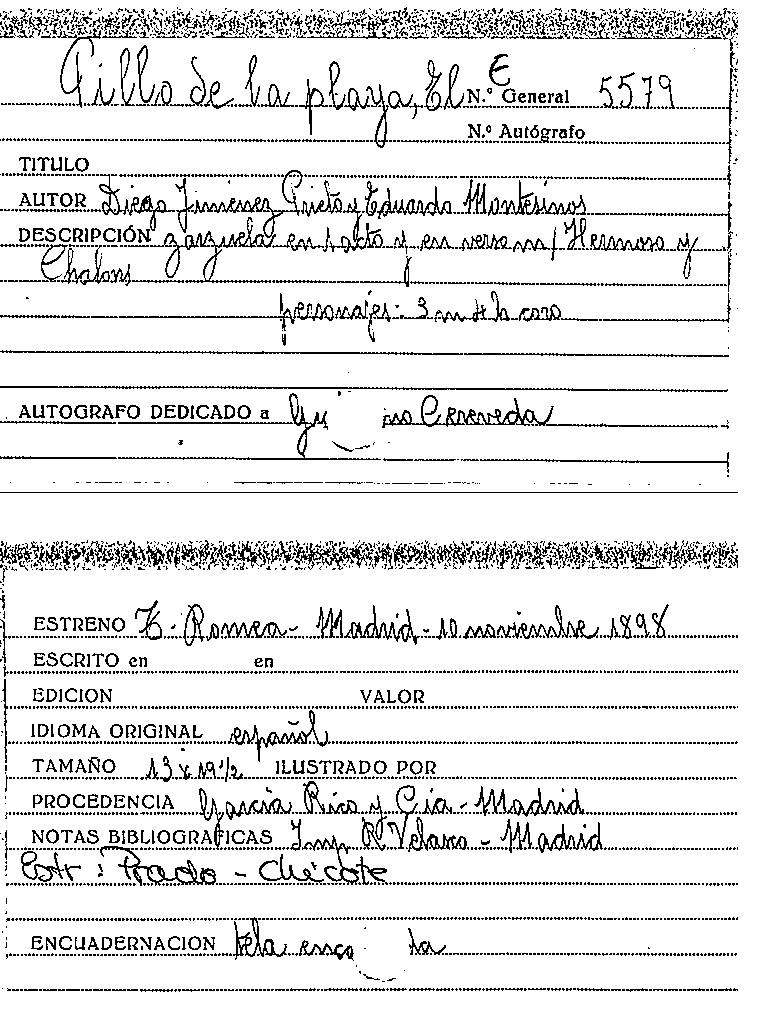 Pillo de la playa, El
E
N.º General 5579
N.º Autógrafo
TITULO
AUTOR Diego Jiménez Prieto y Eduardo Montesinos
DESCRIPCIÓN zarzuela en 1 acto y en verso m/ Hermoso y
Chalons
personajes: 3 m 4 h coro
AUTOGRAFO DEDICADO a
ESTRENO T. Romea - Madrid - 10 noviembre 1898
ESCRITO en en
EDICION VALOR
IDIOMA ORIGINAL español
TAMAÑO 13 x 19 1/2 ILUSTRADO POR
PROCEDENCIA García Rico y Cia - Madrid
NOTAS BIBLIOGRAFICAS Imp R Velasco - Madrid
Estr: Prado - Chicote
ENCUADERNACION tela